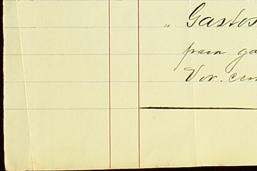 " Gastos
para ga
Vor. cin